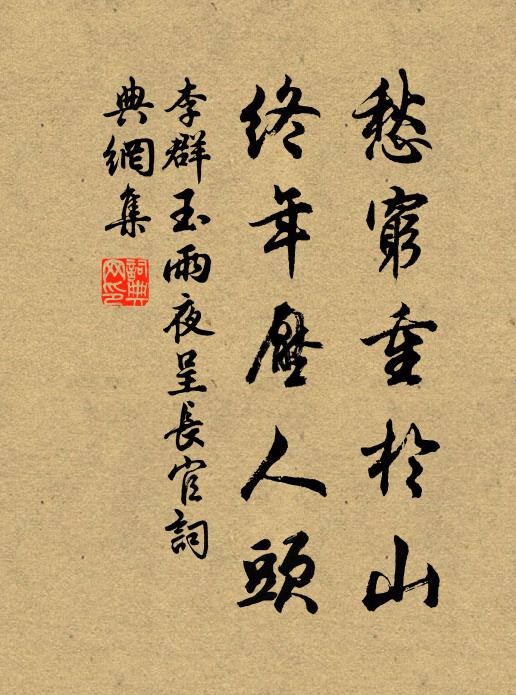 愁窮重於山
終年壓人頭
李群玉雨夜呈長官詞
典網集
詞典
网印